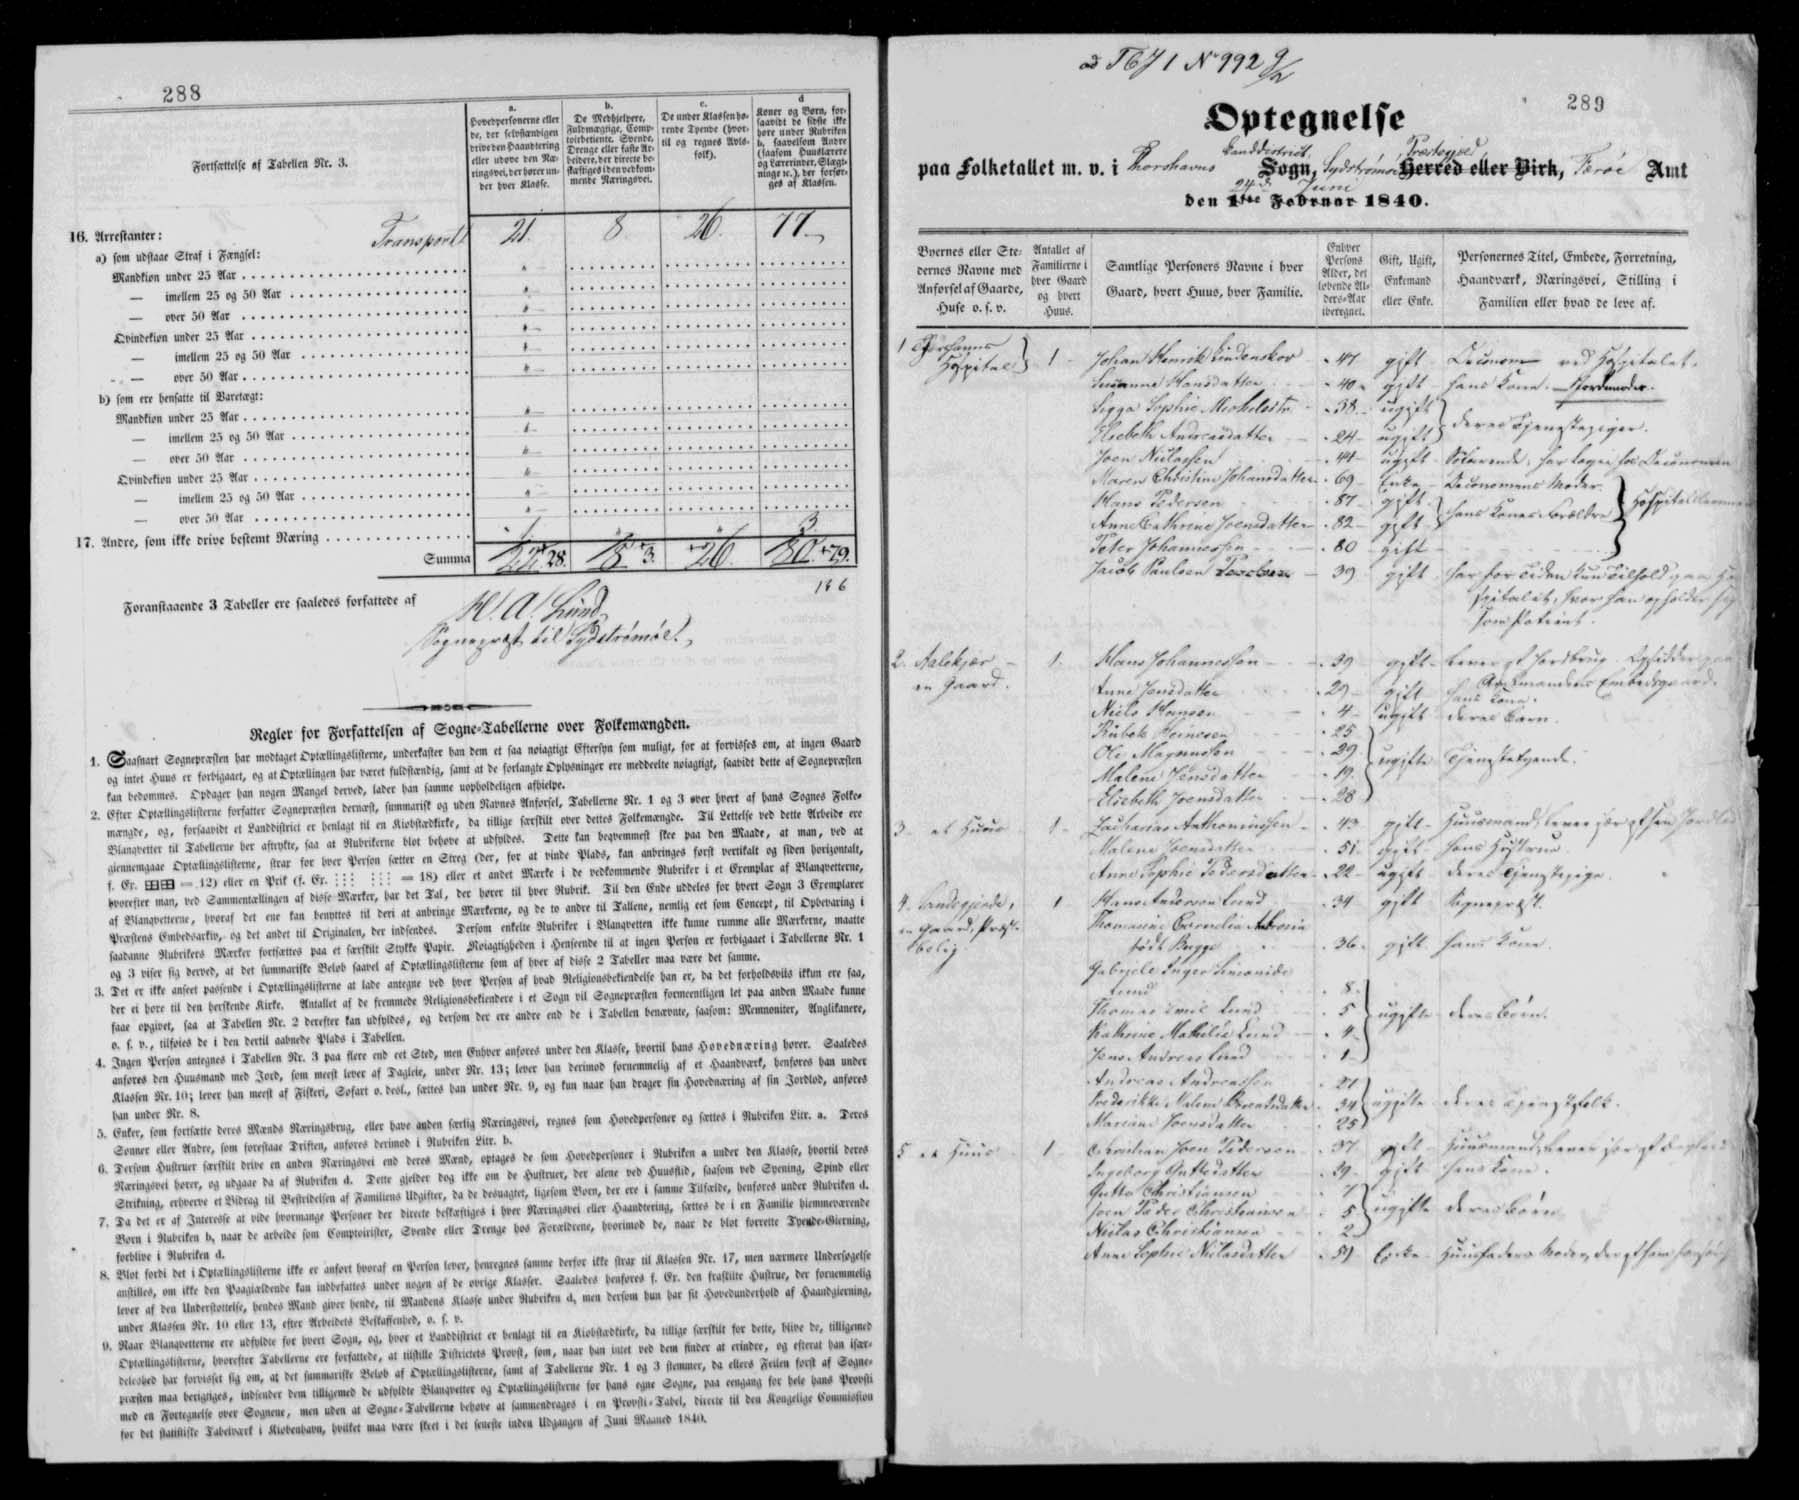 288
Fortsættelse af Tabellen Nr. 3.
a.
Hovedpersonerne eller
de, der selvstændigen
drive den Haandtering
eller udøve den Næ-
ringsvei, der hører un-
der hver Klasse.
b.
De Medhjelpere,
Fuldmægtige, Comp-
toirbetiente, Svende,
Drenge eller faste Ar-
beidere, der directe be-
skæftiges i den vedkom-
mende Næringsvei.
c.
De under Klassen hø-
rende Tyende (hvor-
til og regnes Avls-
folk).
d
Koner og Børn, for-
saavidt de sidste ikke
høre under Rubriken
b, saavelsom Andre
(saasom Huuslærere
og Lærerinder, Slægt-
ninge ꝛc.), der forsør-
ges af Klassen.
16. Arrestanter: Transport 21. 8 26. 77
a) som udstaae Straf i Fængsel:
Mandkiøn under 25 Aar
— imellem 25 og 50 Aar
— over 50 Aar
Qvindekiøn under 25 Aar
— imellem 25 og 50 Aar
— over 50 Aar
b) som ere hensatte til Varetægt:
Mandkiøn under 25 Aar
— imellem 25 og 50 Aar
— over 50 Aar
Qvindekiøn under 25 Aar
— imellem 25 og 50 Aar
— over 50 Aar
17. Andre, som ikke drive bestemt Næring 1 3
Summa 22 28. 8 3. 26. 80 79.
136
Foranstaaende 3 Tabeller ere saaledes forfattede af
H. A. Lund
Sognepræst til Sydstrømøe.
Regler for Forfattelsen af Sogne-Tabellerne over Folkemængden.
1. Saasnart Sognepræsten har modtaget Optællingslisterne, underkaster han dem et saa nøiagtigt Eftersyn som muligt, for at forvisses om, at ingen Gaard
og intet Huus er forbigaaet, og at Optællingen har været fuldstændig, samt at de forlangte Oplysninger ere meddeelte nøiagtigt, saavidt dette af Sognepræsten
kan bedømmes. Opdager han nogen Mangel derved, lader han samme uopholdeligen afhielpe.
2. Efter Optællingslisterne forfatter Sognepræsten dernæst, summarisk og uden Navnes Anførsel, Tabellerne Nr. 1 og 3 over hvert af hans Sognes Folke-
mængde, og, forsaavidt et Landdistrict er henlagt til en Kiøbstædkirke, da tillige særskilt over dettes Folkemængde. Til Lettelse ved dette Arbeide ere
Blanqvetter til Tabellerne her aftrykte, saa at Rubrikerne blot behøve at udfyldes. Dette kan beqvemmest skee paa den Maade, at man, ved at
giennemgaae Optællingslisterne, strax for hver Person sætter en Streg (der, for at vinde Plads, kan anbringes først vertikalt og siden horizontalt,
f. Ex. = 12) eller en Prik (f. Ex. = 18) eller et andet Mærke i de vedkommende Rubriker i et Exemplar af Blanqvetterne,
hvorefter man, ved Sammentællingen af disse Mærker, har det Tal, der hører til hver Rubrik. Til den Ende uddeles for hvert Sogn 3 Exemplarer
af Blanqvetterne, hvoraf det ene kan benyttes til deri at anbringe Mærkerne, og de to andre til Tallene, nemlig eet som Concept, til Opbevaring i
Præstens Embedsarkiv, og det andet til Originalen, der indsendes. Dersom enkelte Rubriker i Blanqvetten ikke kunne rumme alle Mærkerne, maatte
saadanne Rubrikers Mærker fortsættes paa et særskilt Stykke Papir. Nøiagtigheden i Henseende til at ingen Person er forbigaaet i Tabellerne Nr. 1
og 3 viser sig derved, at det summariske Beløb saavel af Optællingslisterne som af hver af disse 2 Tabeller maa være det samme.
3. Det er ikke anseet passende i Optællingslisterne at lade antegne ved hver Person af hvad Religionsbekiendelse han er, da det forholdsviis ikkun ere faa,
der ei høre til den herskende Kirke. Antallet af de fremmede Religionsbekiendere i et Sogn vil Sognepræsten formeentligen let paa anden Maade kunne
faae opgivet, saa at Tabellen Nr. 2 derefter kan udfyldes, og dersom der ere andre end de i Tabellen benævnte, saasom: Memnoniter, Anglikanere,
o. s. v., tilføies de i den dertil aabnede Plads i Tabellen.
4. Ingen Person antegnes i Tabellen Nr. 3 paa flere end eet Sted, men Enhver anføres under den Klasse, hvortil hans Hovednæring hører. Saaledes
anføres den Huusmand med Jord, som meest lever af Dagleie, under Nr. 13; lever han derimod fornemmelig af et Haandværk, henføres han under
Klassen Nr. 10; lever han meest af Fiskeri, Søfart o. desl., sættes han under Nr. 9, og kun naar han drager sin Hovednæring af sin Jordlod, anføres
han under Nr. 8.
5. Enker, som fortsætte deres Mænds Næringsbrug, eller have anden særlig Næringsvei, regnes som Hovedpersoner og sættes i Rubriken Litr. a. Deres
Sønner eller Andre, som forestaae Driften, anføres derimod i Rubriken Litr. b.
6. Dersom Hustruer særskilt drive en anden Næringsvei end deres Mænd, optages de som Hovedpersoner i Rubriken a under den Klasse, hvortil deres
Næringsvei hører, og udgaae da af Rubriken d. Dette gjelder dog ikke om de Hustruer, der alene ved Huusflid, saasom ved Syening, Spind eller
Strikning, erhverve et Bidrag til Bestridelsen af Familiens Udgifter, da de desuagtet, ligesom Børn, der ere i samme Tilfælde, henføres under Rubriken d.
7. Da det er af Interesse at vide hvormange Personer der directe beskæftiges i hver Næringsvei eller Haandtering, sættes de i en Familie hiemmeværende
Børn i Rubriken b, naar de arbeide som Comptoirister, Svende eller Drenge hos Forældrene, hvorimod de, naar de blot forrette Tyende-Gierning,
forblive i Rubriken d.
8. Blot fordi det i Optællingslisterne ikke er anført hvoraf en Person lever, henregnes samme derfor ikke strax til Klassen Nr. 17, men nærmere Undersøgelse
anstilles, om ikke den Paagiældende kan indbefattes under nogen af de øvrige Klasser. Saaledes henføres f. Ex. den fraskilte Hustrue, der fornemmelig
lever af den Understøttelse, hendes Mand giver hende, til Mandens Klasse under Rubriken d, men dersom hun har sit Hovedunderhold af Haandgierning,
under Klassen Nr. 10 eller 13, efter Arbeidets Beskaffenhed, o. s. v.
9. Naar Blanqvetterne ere udfyldte for hvert Sogn, og, hvor et Landdistrict er henlagt til en Kiøbstædkirke, da tillige særskilt for dette, blive de, tilligemed
Optællingslisterne, hvorefter Tabellerne ere forfattede, at tilstille Districtets Provst, som, naar han intet ved dem finder at erindre, og efterat han især-
deleshed har forvisset sig om, at det summariske Beløb af Optællingslisterne, samt af Tabellerne Nr. 1 og 3 stemmer, da ellers Feilen først af Sogne-
præsten maa berigtiges, indsender dem tilligemed de udfyldte Blanqvetter og Optællingslisterne for hans egne Sogne, paa eengang for hele hans Provsti
med en Fortegnelse over Sognene, men uden at Sogne-Tabellerne behøve at sammendrages i en Provsti-Tabel, directe til den Kongelige Commission
for det statistiske Tabelværk i Kiøbenhavn, hvilket maa være skeet i det seneste inden Udgangen af Juni Maaned 1840.
ad No 992
289
Optegnelse
Landdistrict Præstegjeld
paa Folketallet m. v. i Thorshavns Sogn, Sydstrømøe Herred eller Birk, Færöe Amt
24de Juni
den 1ste Februar 1840.
Byernes eller Ste-
dernes Navne med
Anførsel af Gaarde,
Huse o. s. v.
Antallet af
Familierne i
hver Gaard
og hvert
Huus.
Samtlige Personers Navne i hver
Gaard, hvert Huus, hver Familie.
Enhver
Persons
Alder, det
løbende Al-
ders-Aar
iberegnet.
Gift, Ugift,
Enkemand
eller Enke.
Personernes Titel, Embede, Forretning,
Haandværk, Næringsvei, Stilling i
Familien eller hvad de leve af.
1 Thorshavns Hospital 1 Johan Henrik Lindenskov 47 gift Oeconom ved Hospitalet.
Susanne Hansdatter 40 gift hans Kone. Jordmoder.
Sigga Sophie Michelsdtr. 38 ugift deres Tjenestepiger.
Elsebeth Andreasdatter 24 ugift
Joen Nielassen 44 ugift Söfarende, har Logie hos Oeconomen
Maren Christine Johansdatter 69 Enke Oeconomens Moder.
Hans Pedersen 87 gift hans Kones Forældre Hospitalslemmer
Anne Cathrine Joensdatter 82 gift
Peter Johannessen 80 gift
Jacob Paulsen 39 gift har for Tiden kun Tilhold paa Ho-
spitalet, hvor han opholder sig
som Patient.
2. Aalekjær 1. Hans Johannessen 39 gift lever af Jordbrug. Opsidder paa
en Gaard. Amtmandens Embedsgaard.
Anne Jensdatter 29 gift hans Kone.
Niels Hansen 4 ugift deres Barn.
Rubek Heinesen 25
Ole Magnussen 29 ugifte Tjenestetyende.
Malene Jensdatter 19.
Elsebeth Joensdatter 28
3 et Huus 1 Zacharias Anthoniussen 43 gift Huusmand, lever for af sin Jordlod
Malene Joensdatter 51 gift hans Hustrue.
Anne Sophie Pedersdatter 22 ugift deres Tjenestepige.
4. Sandegjerde, 1 Hans Andersen Lund 34 gift Sognepræst.
en Gaard, Præste- Thomasine Cornelia
bolig födt Bugge 36 gift hans Kone.
Gabriele Inger Simonide
Lund 8
Thomas Emil Lund 5 ugifte deres Börn.
Kathrine Mathilde Lund 4
Jens Andreas Lund 1
Andreas Andreassen 21
Frederikke Malene 34 ugifte deres Tjenestefolk.
Mariane Joensdatter 25
5 et Huus 1 Christian Joen Pedersen 37 gift Huusmand, lever for af
Ingeborg Guttesdatter 39 gift hans Kone.
Gutte Christiansen 7
Joen Peder Christiansen 5 ugifte deres Börn
Niclas Christiansen 2
Anne Sophie Niclasdatter 51 Enke Huusfaders Moder, der af ham forsörges